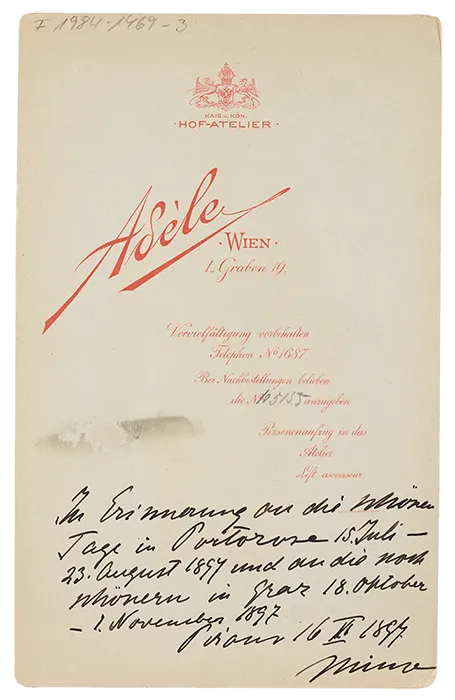 I 1984·1469-3
KAIS. u. KÖN.
·HOF-ATELIER·
Adèle
·WIEN·
I., Graben 19.
Vervielfältigung vorbehalten
Telephon No 1687
Bei Nachbestellungen belieben
die No 105155 anzugeben
Personenaufzug in das
Atelier
Lift ascenseur.
In Erinnerung an die schönen
Tage in Portorose 15. Juli –
23. August 1897 und an die noch
schönern in Graz 18. Oktober
– 1. November 1897
Pirano 16 1897